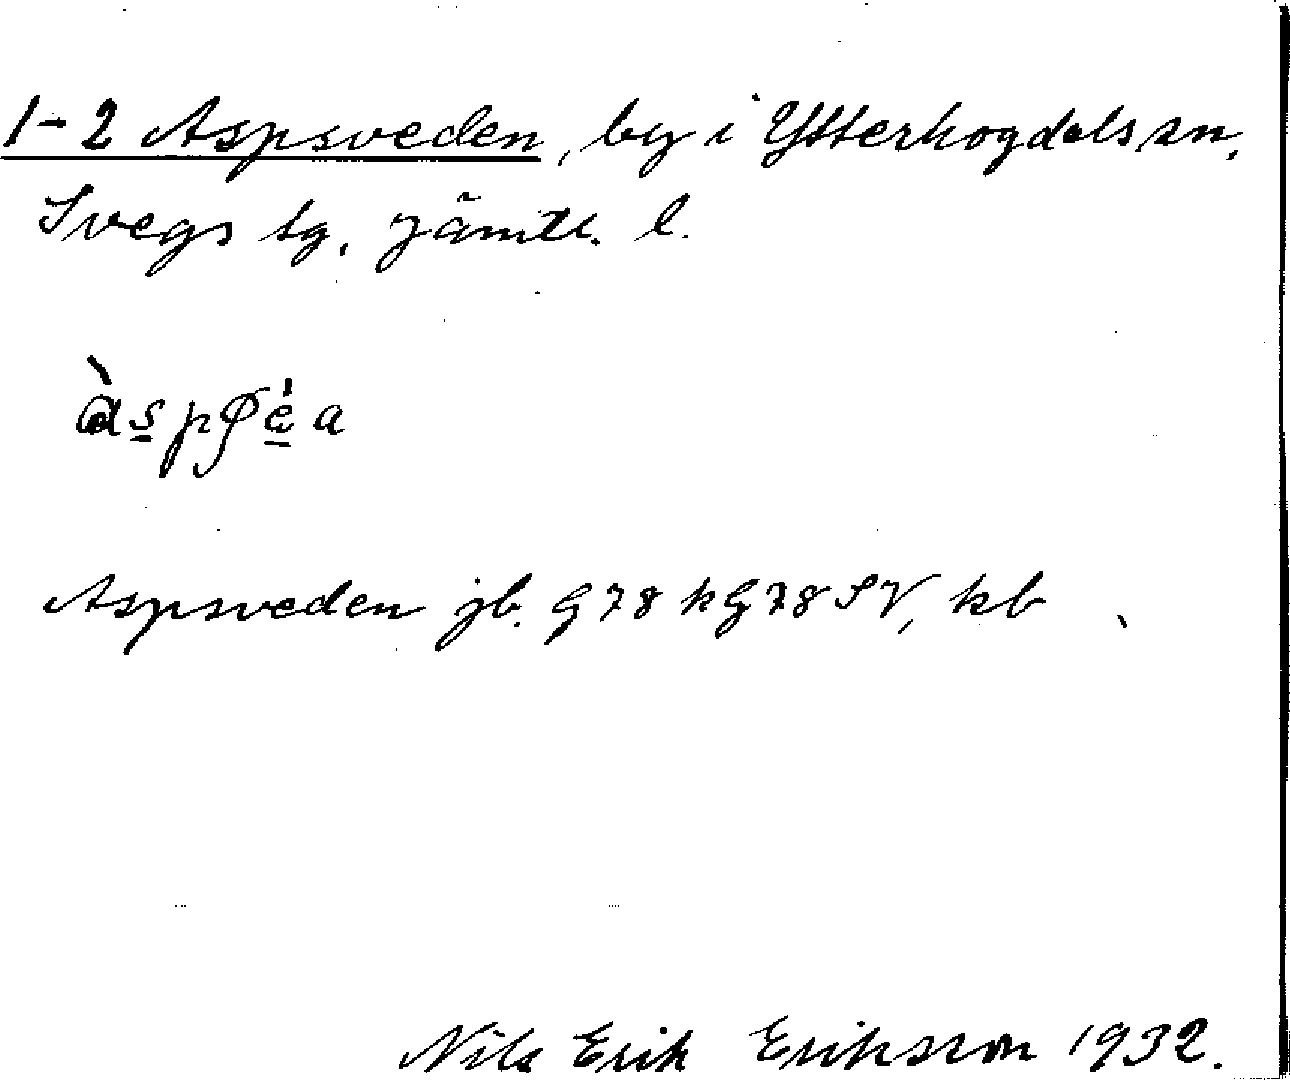 1-2 Aspsveden, by i Ytterhogdals sn,
Svegs tg, Jämtl. l.
Aspsveden jb. G78 kG78SV, kb
Nils Erik Eriksson 1932.